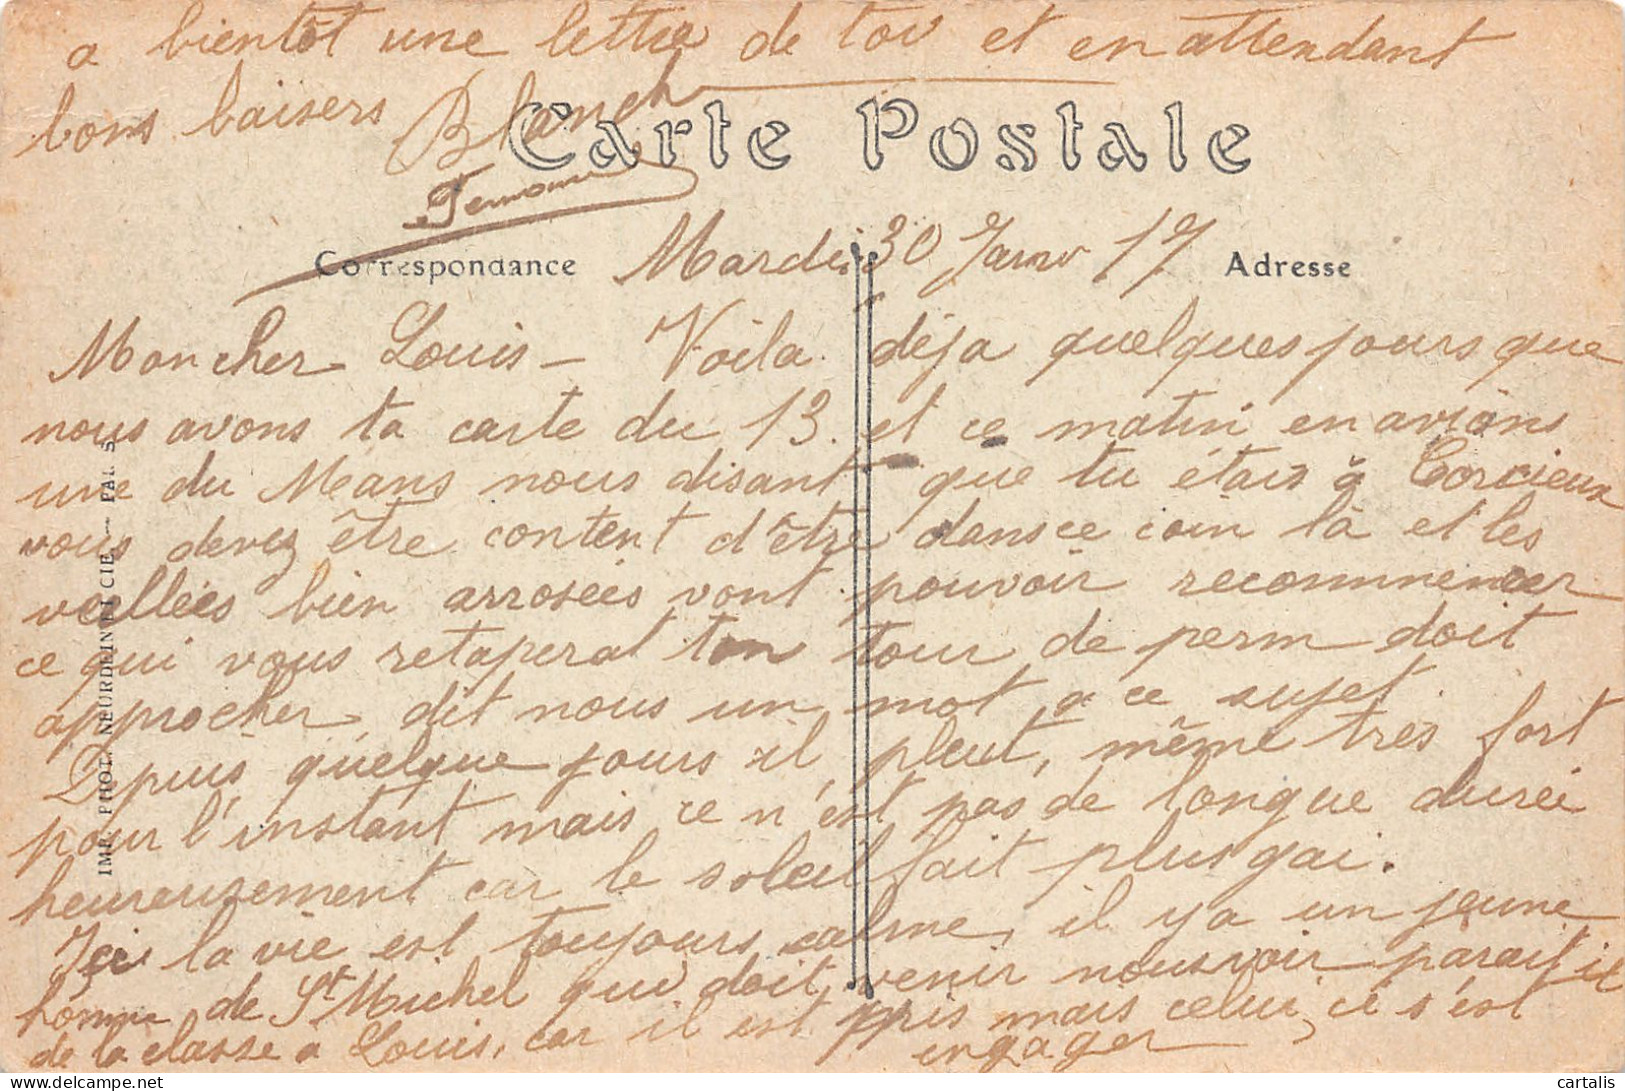 a bientôt une lettre de toi et en attendant
bons baisers Blanche
Carte Postale
Correspondance
Mardi 30 Janv 17
Adresse
Mon cher Louis – Voila déja quelques jours que
nous avons ta carte du 13. et ce matin en avions
une du Mans nous disant que tu étais à Corcieux
vous devez être content d'être dans ce coin là et les
veellées bien arrosées vont pouvoir recommencer
ce qui vous retaperat ton tour de perm doit
approcher dit nous un mot a ce sujet.
Depuis quelque jours il pleut, même très fort
pour l'instant mais ce n'est pas de longue durée
heureusement car le soleil fait plus gai.
Içi la vie est toujours calme, il y a un jeune
homme de St Michel qui doit venir nous voir parait il
de la classe a Louis, car il est pris mais celui ci s'est
engager
IMP. PHOT. NEURDEIN ET CIE – PARIS
cartalis